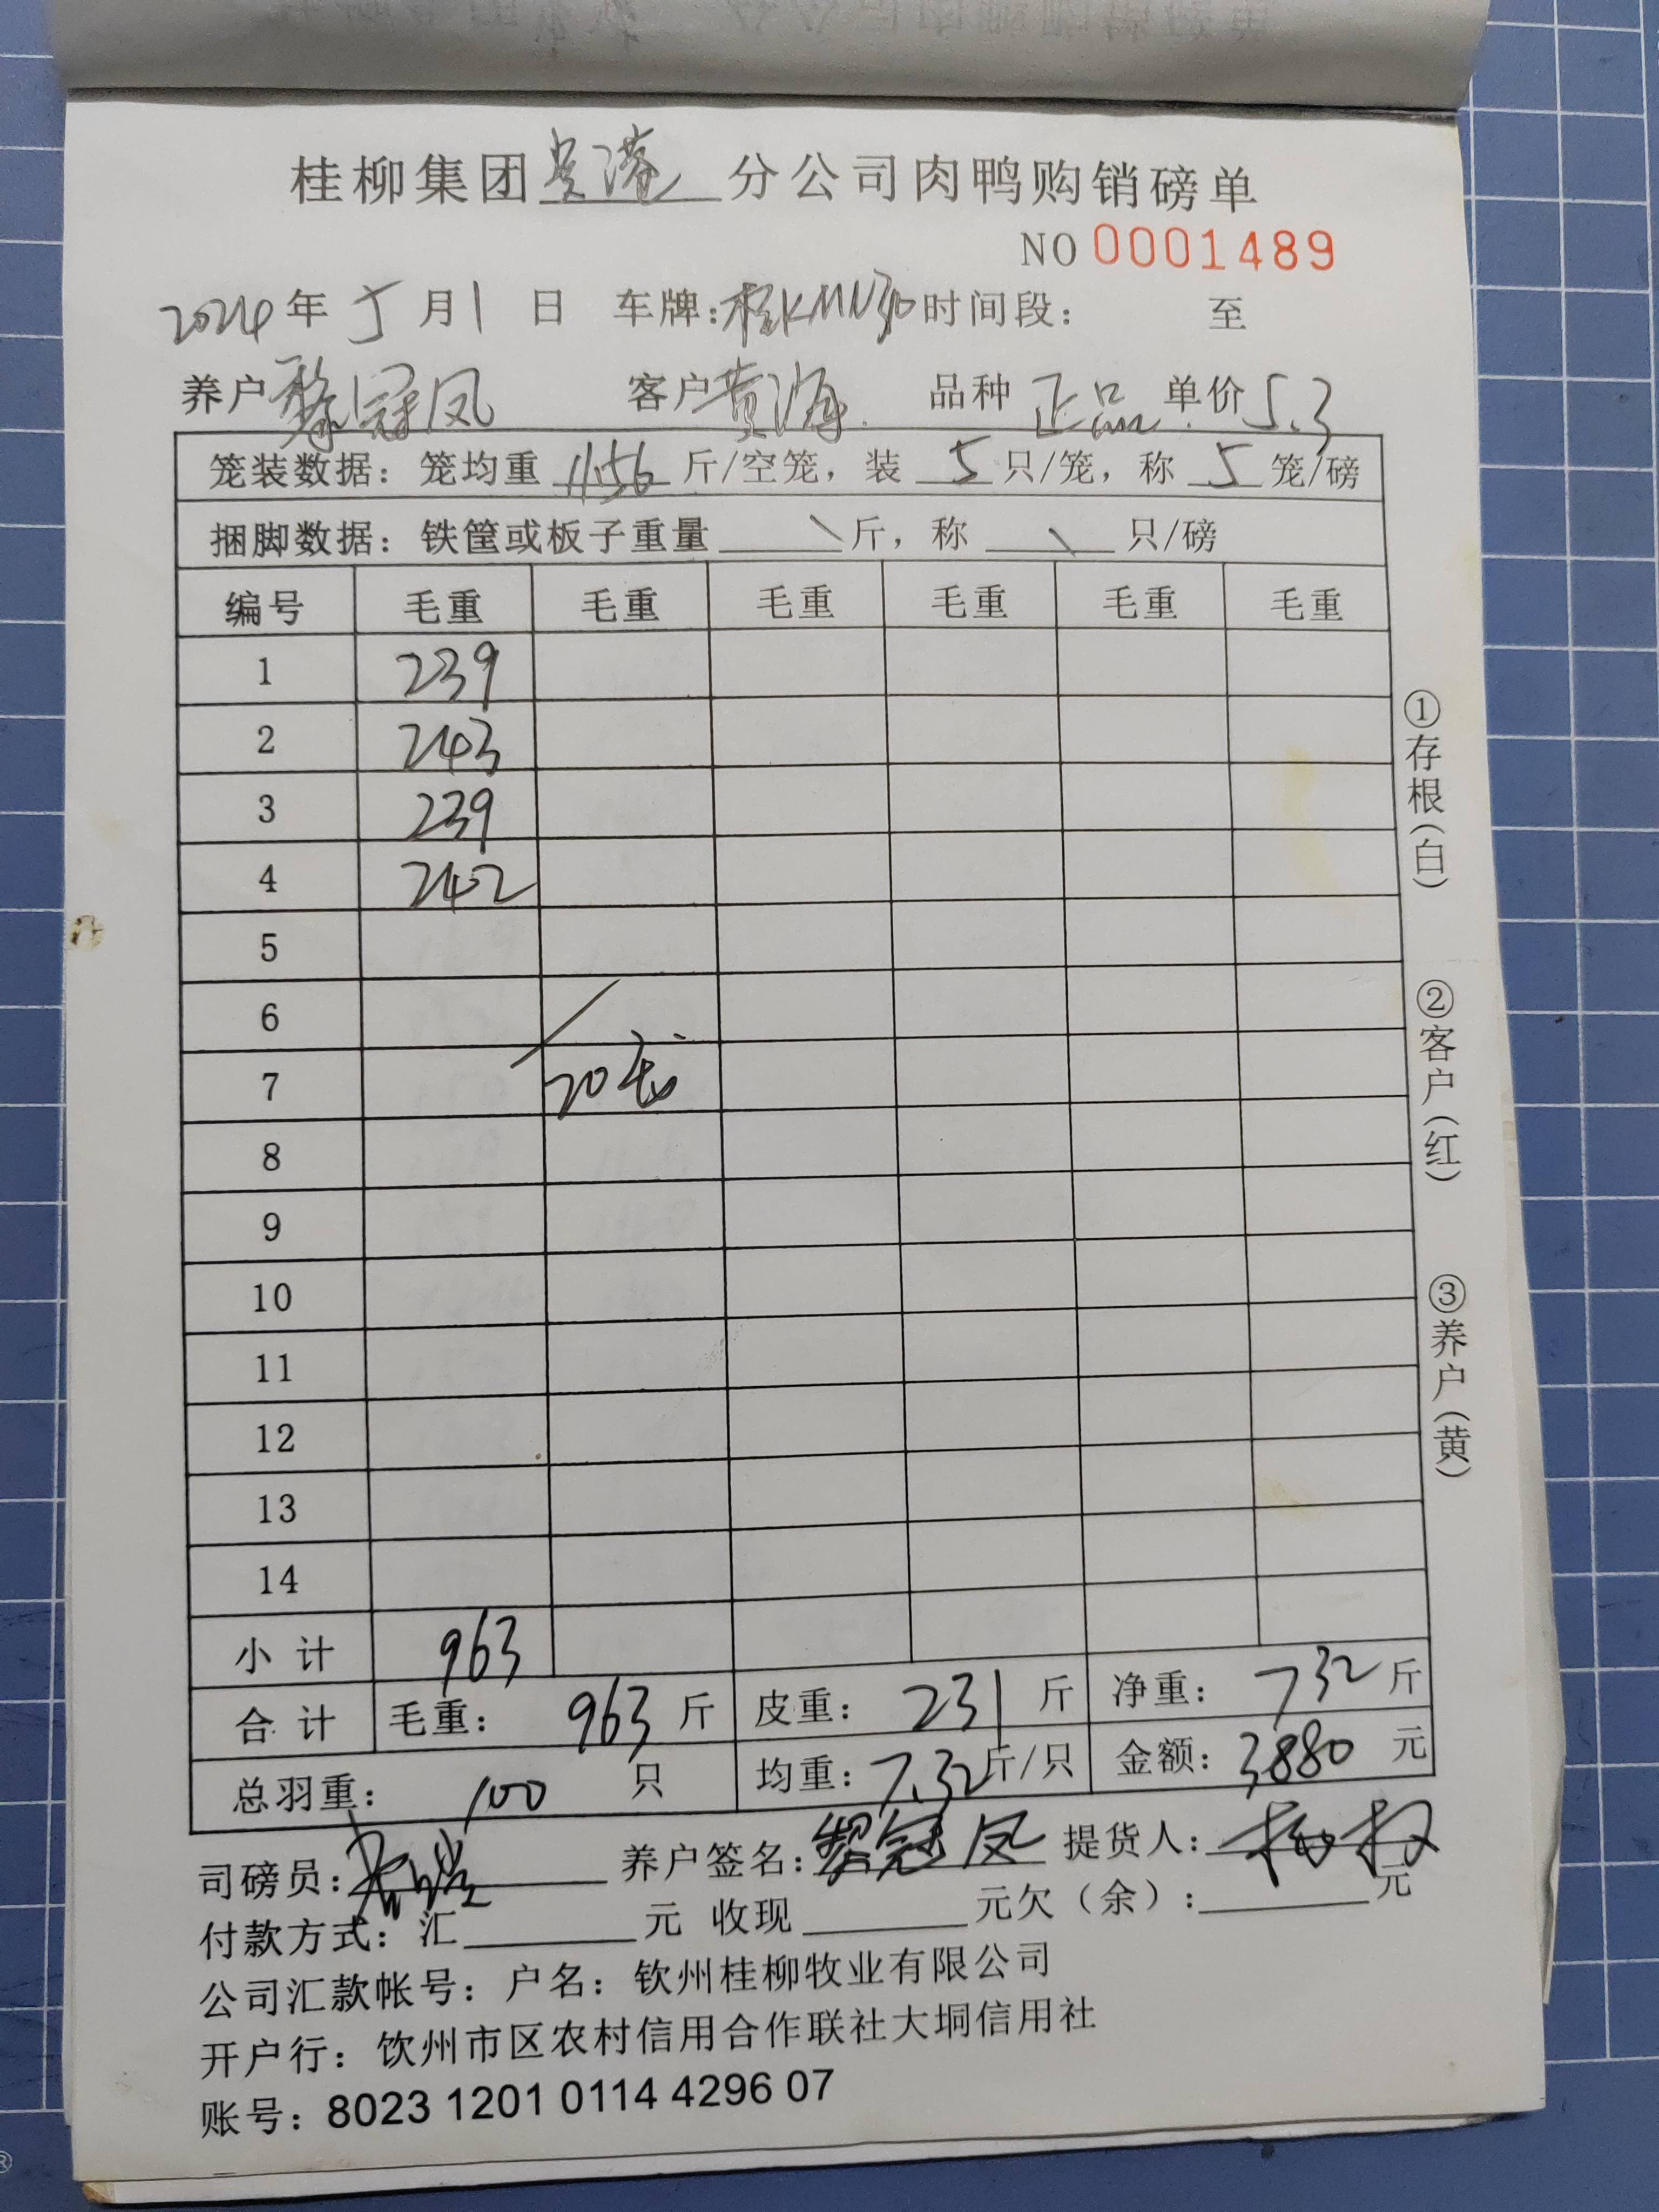 桂柳集团贵港分公司肉鸭购销磅单
NO 0001489
2024年5月1日 车牌:桂KMN390时间段: 至
养户黎冠凤 客户黄海 品种正品 单价5.3
笼装数据: 笼均重 11.56 斤/空笼, 装 5 只/笼, 称 5 笼/磅
捆脚数据: 铁筐或板子重量 \ 斤, 称 \ 只/磅
编号 毛重 毛重 毛重 毛重 毛重 毛重
1 239
2 243
3 239
4 242
5
6
7 20
8
9
10
11
12
13
14
小计 963
合计 毛重: 963 斤 皮重: 231 斤 净重: 732 斤
总羽重: 100 只 均重: 7.32斤/只 金额: 3880 元
司磅员: 养户签名: 黎冠凤 提货人:
付款方式: 汇 元 收现 元欠（余）: 元
公司汇款帐号: 户名: 钦州桂柳牧业有限公司
开户行: 钦州市区农村信用合作联社大垌信用社
账号: 8023 1201 0114 4296 07
①存根(白)
②客户(红)
③养户(黄)